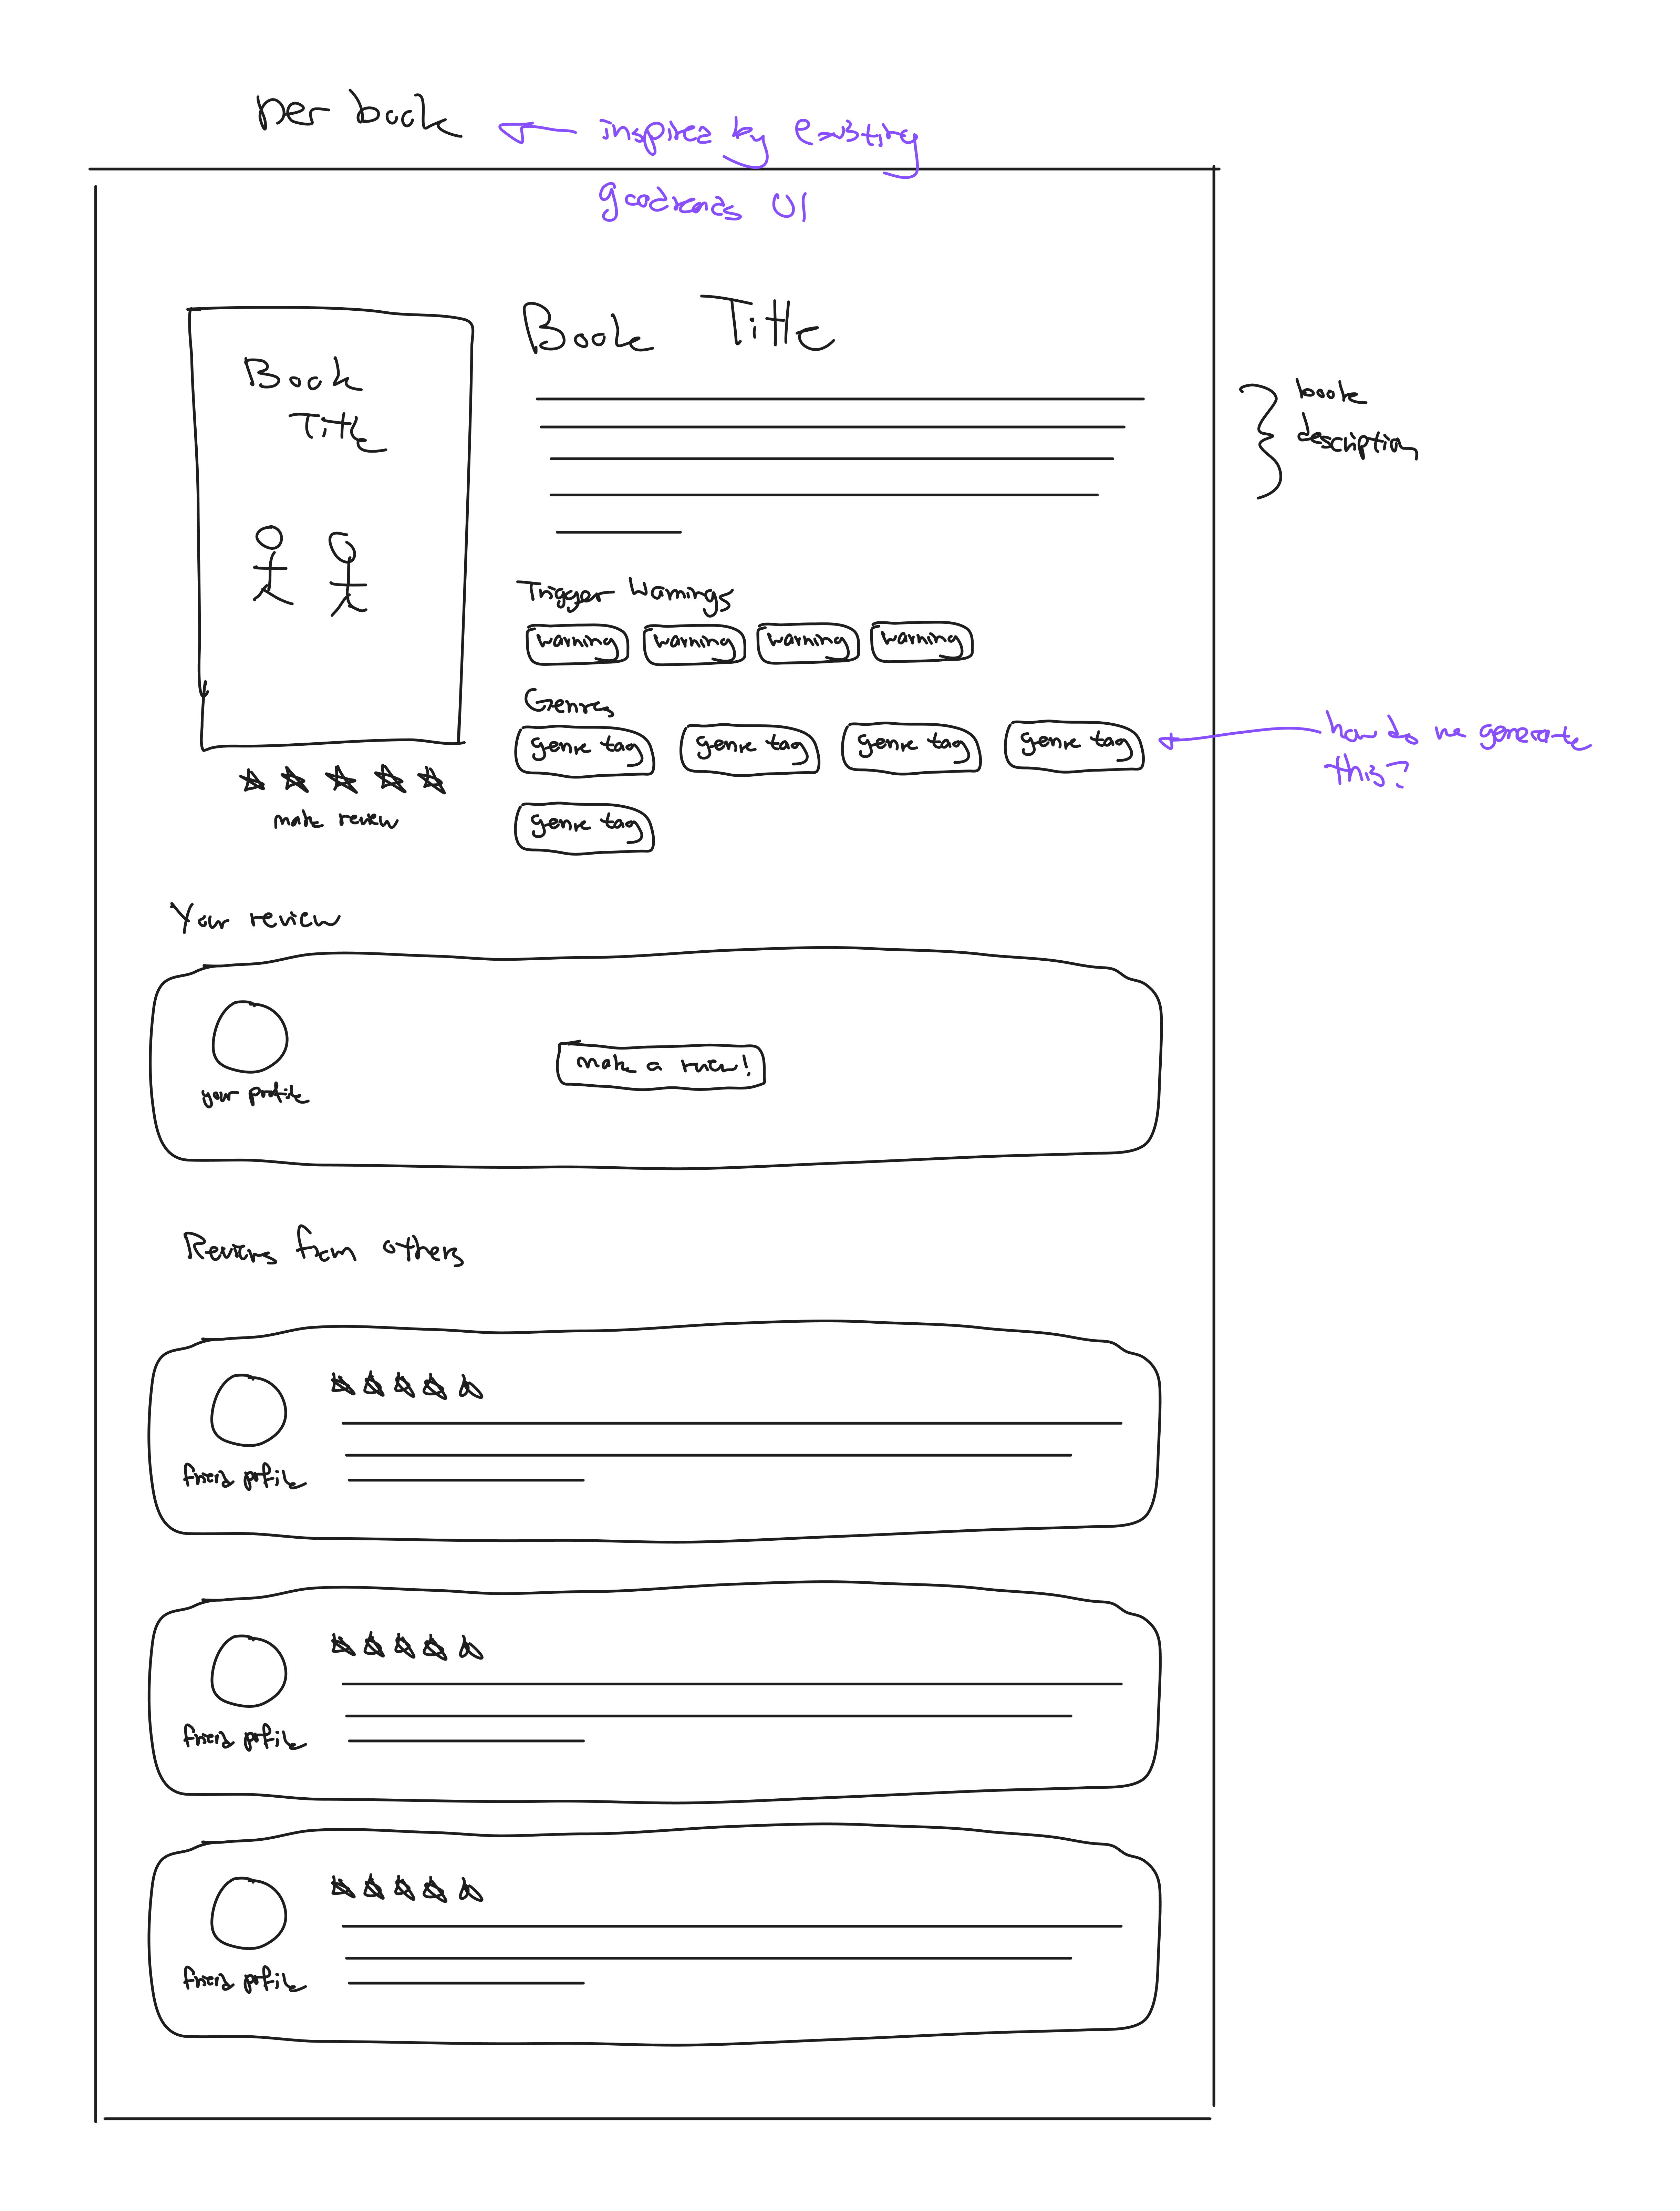 per book
inspired by existing
goodreads UI
Book
Title
Book Title
book
description
Trigger Warnings
warning warning warning warning
Genres
genre tag genre tag genre tag genre tag
how do we generate
this?
genre tag
make review
Your review
your profile
make a review!
Reviews from others
friend profile
friend profile
friend profile